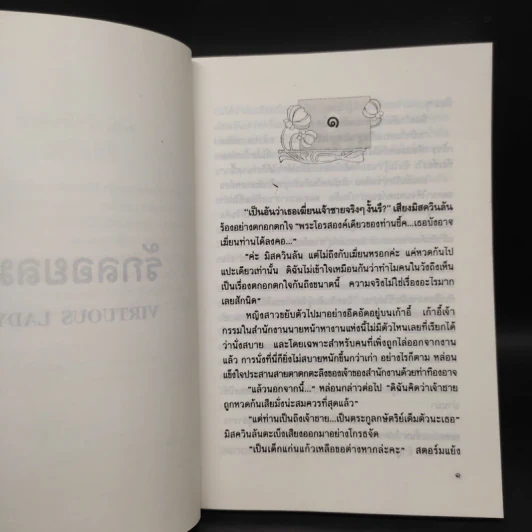 ๑
"เป็นอันว่าเธอเฆี่ยนเจ้าชายจริงๆ งั้นรึ?" เสียงมิสควินลัน
ร้องอย่างตกอกตกใจ "พระโอรสองค์เดียวของท่านชี้ค...เธอบังอาจ
เฆี่ยนท่านได้ลงคอ..."
"ค่ะ มิสควินลัน แต่ไม่ถึงกับเฆี่ยนหรอกค่ะ แค่หวดก้นไป
แปะเดียวเท่านั้น ดิฉันไม่เข้าใจเหมือนกันว่าทำไมคนในวังถึงเห็น
เป็นเรื่องตกอกตกใจกันถึงขนาดนี้ ความจริงไม่ใช่เรื่องอะไรมาก
เลยสักนิด"
หญิงสาวขยับตัวไปมาอย่างอึดอัดอยู่บนเก้าอี้ เก้าอี้เจ้า
กรรมในสำนักงานนายหน้าหางานแห่งนี้ไม่มีตัวไหนเลยที่เรียกได้
ว่านั่งสบาย และโดยเฉพาะสำหรับคนที่เพิ่งถูกไล่ออกจากงาน
แล้ว การนั่งที่นี่ก็ยิ่งไม่สบายหนักขึ้นกว่าเก่า อย่างไรก็ตาม หล่อน
แข็งใจประสานสายตาตกตะลึงของเจ้าของสำนักงานด้วยท่าทีองอาจ
"แล้วนอกจากนี้..." หล่อนกล่าวต่อไป "ดิฉันคิดว่าเจ้าชาย
ถูกหวดก้นเสียมั่งน่ะสมควรที่สุดแล้ว"
"แต่ท่านเป็นถึงเจ้าชาย...เป็นตระกูลกษัตริย์เต็มตัวนะเธอ"
มิสควินลันตะเบ็งเสียงออกมาอย่างโกรธจัด
"เป็นเด็กแก่นแก้วเหลือขอต่างหากล่ะคะ" สตอร์มแย้ง